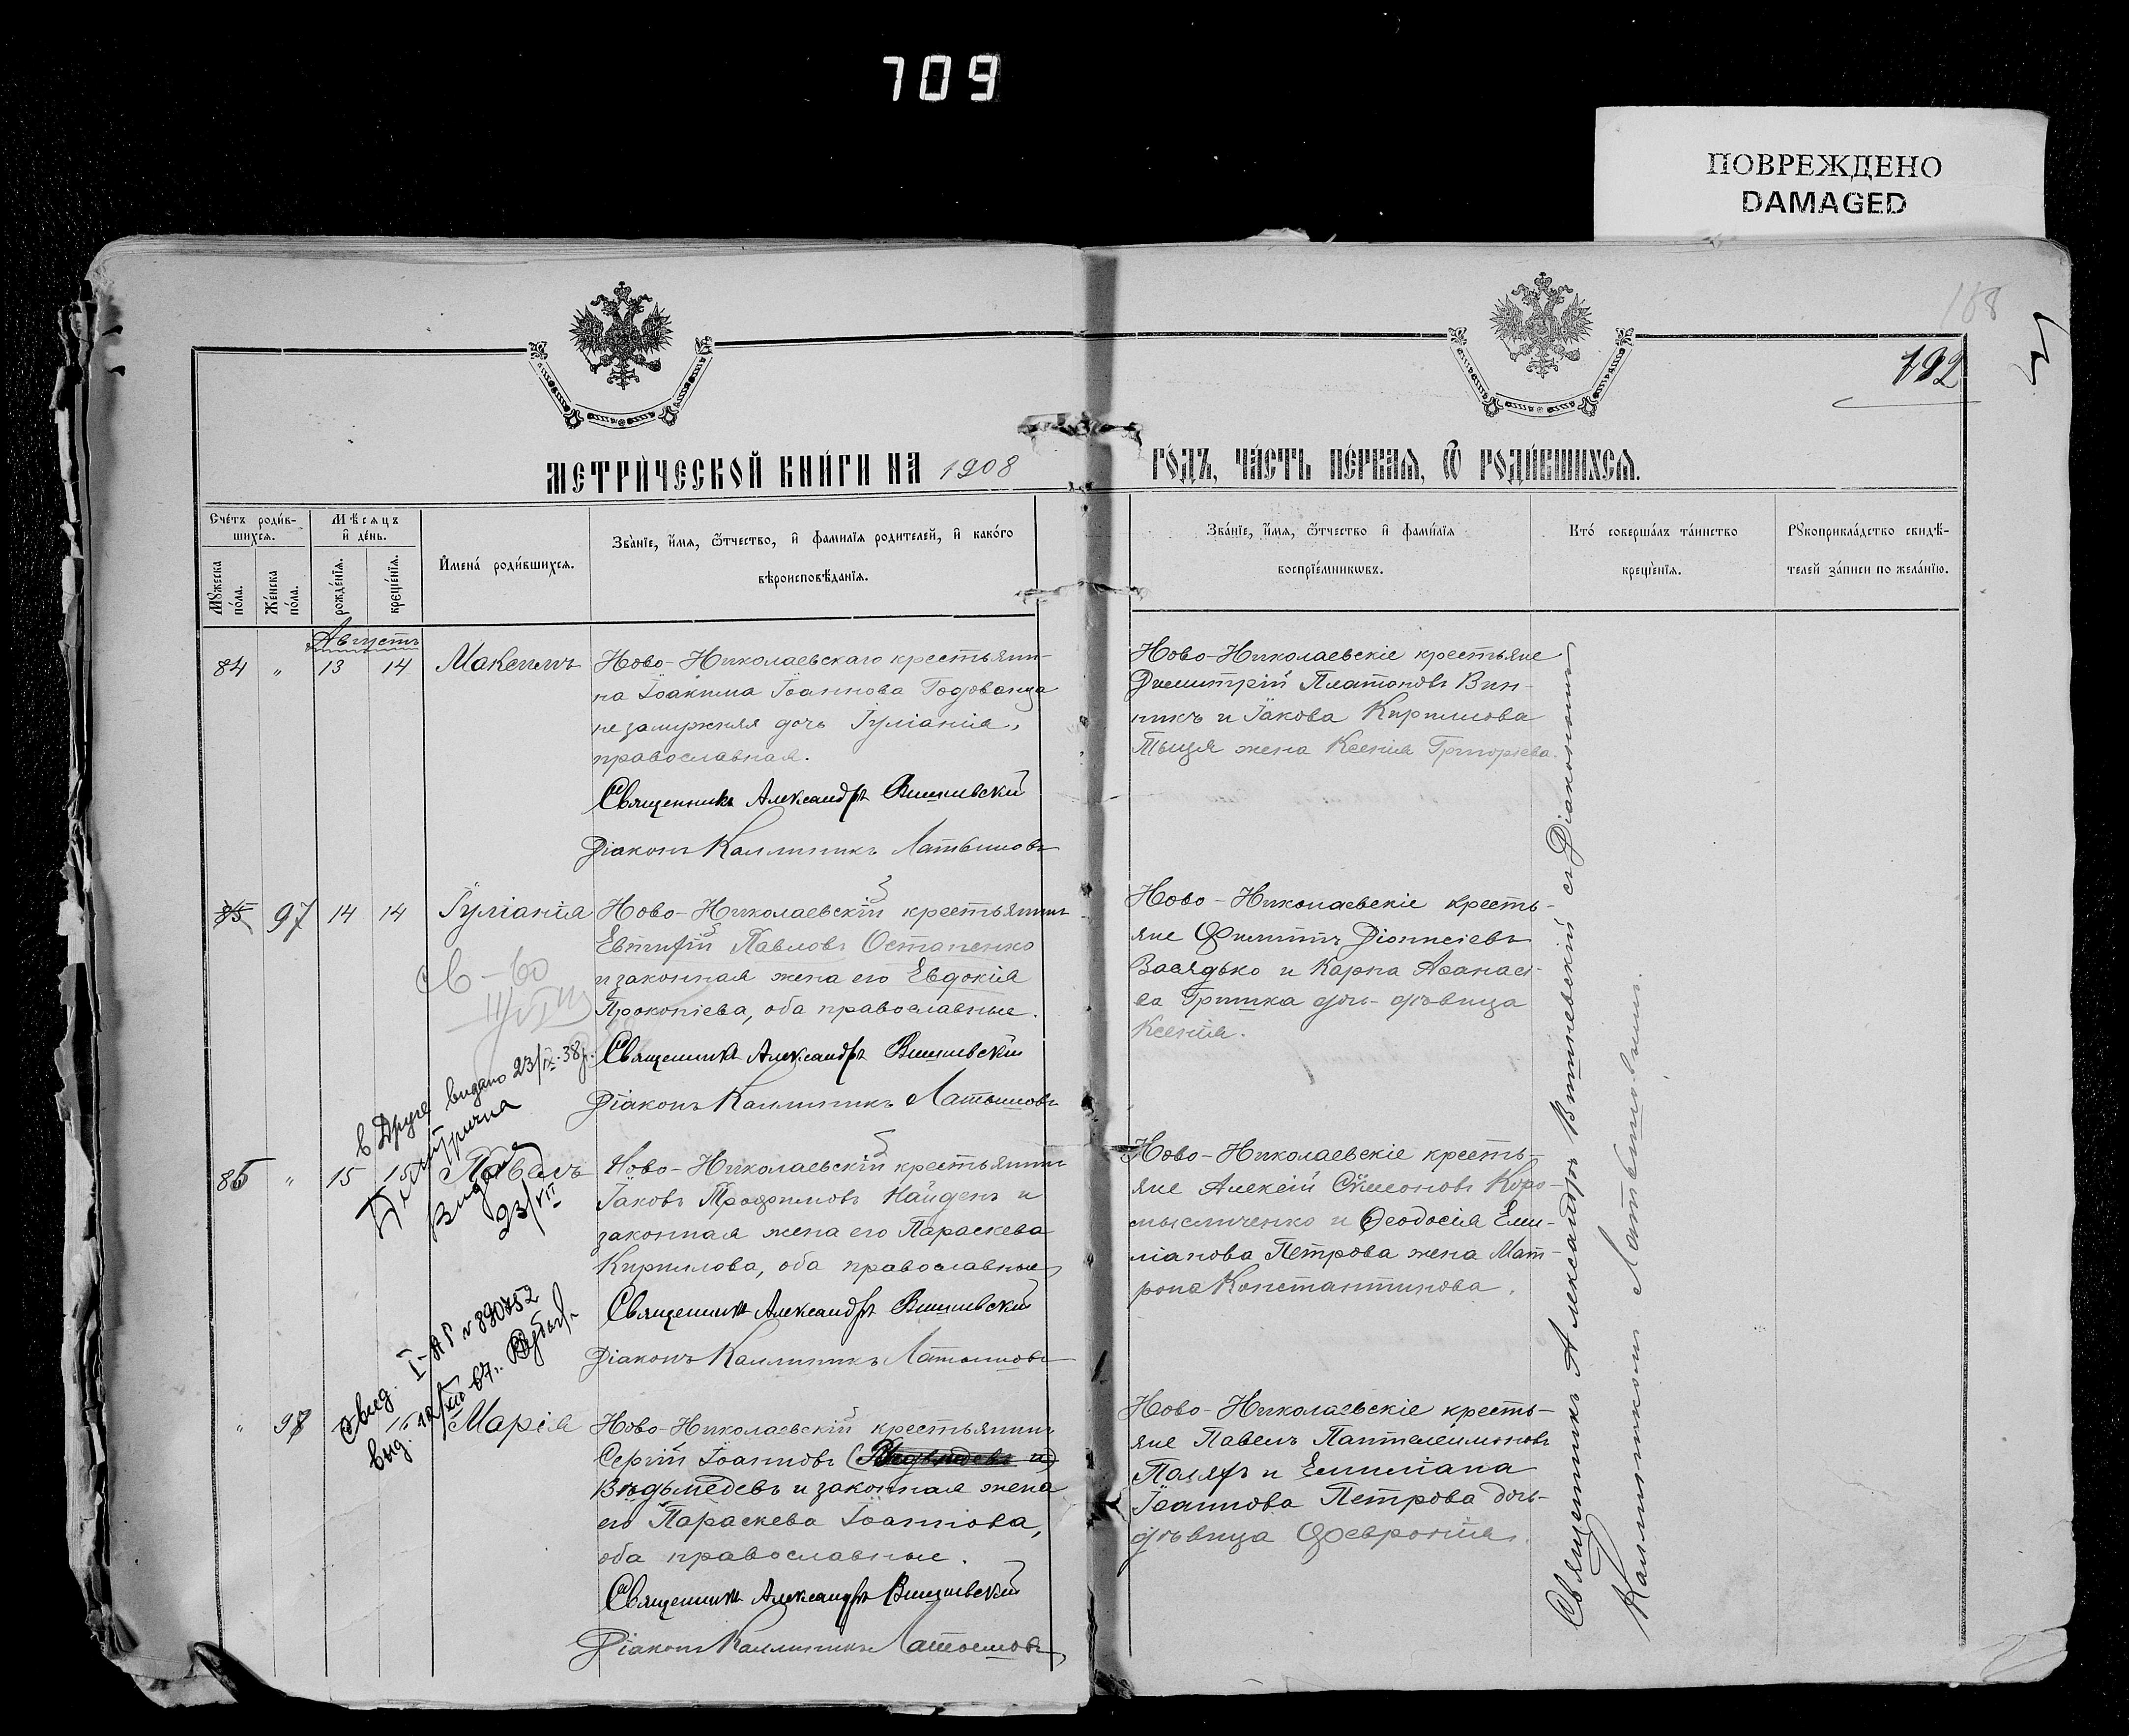 709
ПОВРЕЖДЕНО
DAMAGED
168
192
МЕТРИ́ЧЕСКОЙ КНИ́ГИ НА 1908
ГО́ДЪ, ЧА́СТЬ ПЕ́РВАЯ, Ѿ РОДИ́ВШИХСЯ.
Сче́тъ роди́в-
шихся.
Мѣ́сяцъ
и҆ де́нь.
Мꙋ́жеска
по́ла.
Же́нска
по́ла.
рожде́нїѧ.
креще́нїѧ.
И҆мена̀ роди́вшихсѧ.
Зва́нїе, и҆́мѧ, ѻ҆́тчество, и҆ фами́лїѧ роди́телей, и҆ како́го
вѣроисповѣ́данїѧ.
Зва́нїе, и҆́мѧ, ѻ҆́тчество и҆ фами́лїѧ
воспрїе́мникѡвъ.
Кто̀ соверша́лъ та́инство
креще́нїѧ.
Рꙋкоприкла́дство свидѣ́-
телей за́писи по жела́нїю.
Августъ
84 " 13 14 Максимъ
Ново-Николаевскаго крестьяни-
на Іоакима Іоаннова Годованца
незамужняя дочь Іуліанія,
православная.
Священникъ Александръ Вишневскій
Діаконъ Каллиникъ Латышовъ
Ново-Николаевскіе крестьяне
Димитрій Платоновъ Вин-
никъ и Іакова Кириллова
жена Ксенія Григоріева.
85 97 14 14 Іуліанія
Ново-Николаевскій крестьянинъ
Евтифій Павловъ Остапенко
и законная жена его Евдокія
Прокопіева, оба православные.
Священникъ Александръ Вишневскій
Діаконъ Каллиникъ Латышовъ
Ново-Николаевскіе кресть-
яне Филиппъ Діонисіевъ
Засядько и Карпа Аѳанасі-
ва Гришка дочь-дѣвица
Ксенія.
св-во
Друге видано 23/IX-38р.
85 " 15 15 Павелъ
Видано
23/VII
Ново-Николаевскій крестьянинъ
Іаковъ Трофимовъ Найденъ и
законная жена его Параскева
Кириллова, оба православные
Священникъ Александръ Вишневскій
Діаконъ Каллиникъ Латышовъ
Ново-Николаевскіе кресть-
яне Алексій Сѵмеоновъ Коро-
мысличенко и Ѳеодосія Еми-
ліанова Петрова жена Мат-
рона Константинова.
Свид. I-АР № 890752
выд. 12/XII-67г.
" 98 Марія
Ново-Николаевскій крестьянинъ
Сергій Іоанновъ
Вѣдьмедевъ и законная жена
его Параскева Іоаннова,
оба православные.
Священникъ Александръ Вишневскій
Діаконъ Каллиникъ Латышовъ
Ново-Николаевскіе кресть-
яне Павелъ Пантелеимоновъ
и Емиліана
Іоаннова Петрова дочь-
дѣвица Февронія.
Священникъ Александръ Вишневскій съ Діакономъ
Каллиникомъ Латышовымъ.